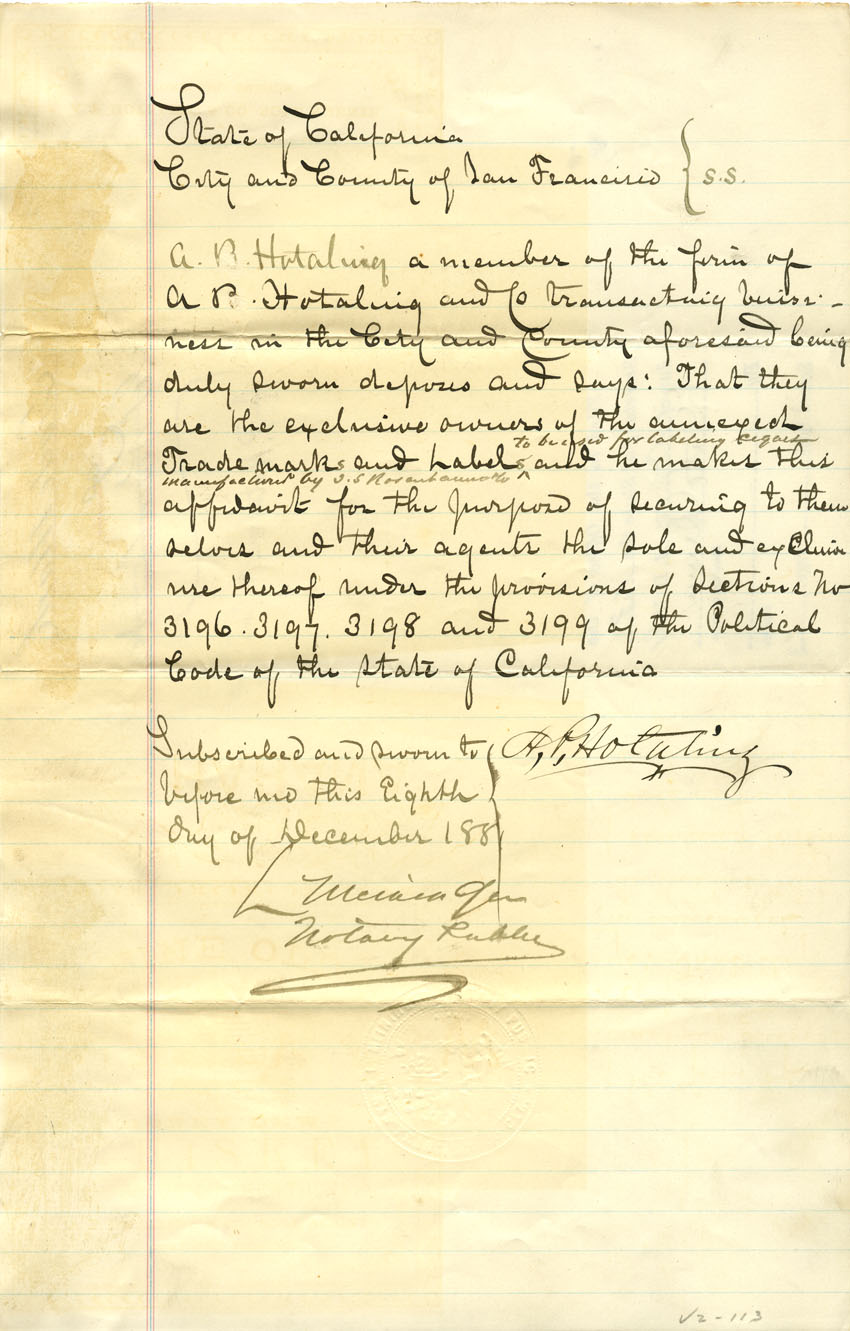 State of California
City and County of San Francisco } s.s.
A. B. Hotaling a member of the firm of
A B. Hotaling and Co transacting busi-
ness in the City and County aforesaid being
duly sworn deposes and says: That they
are the exclusive owners of the annexed
to be used for labeling cigars
Trade marks and Labels and he makes this
manufactured by
affidavit for the purpose of securing to them
selves and their agents the sole and exclusive
use thereof under the provisions of Sections No
3196. 3197. 3198 and 3199 of the Political
Code of the State of California
Subscribed and sworn to
before me this Eighth
day of December 188
A. P. Hotaling
Notary Public
V2-113